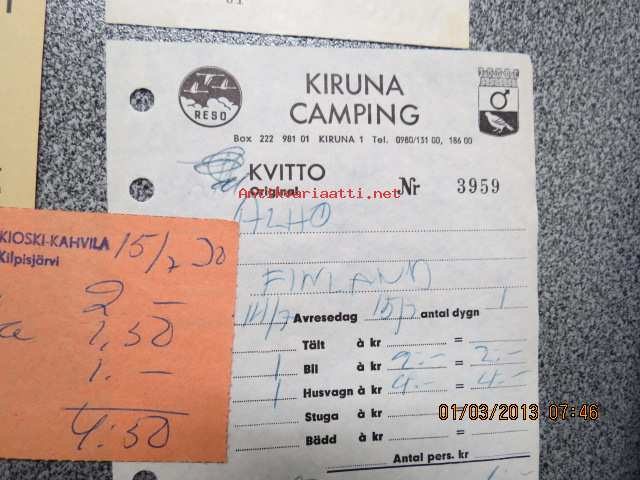 RESO
KIRUNA
CAMPING
Box 222 981 01 KIRUNA 1 Tel. 0980/131 00, 186 00
KVITTO
Original
Nr 3959
Antikvariaatti.net
ALHO
FINLAND
14/7 Avresedag 15/7 antal dygn 1
Tält à kr =
1 Bil à kr 2.- = 2.-
1 Husvagn à kr 4.- = 4.-
Stuga à kr =
Bädd à kr =
Antal pers. kr
KIOSKI-KAHVILA 15/7 70
Kilpisjärvi
2 -
1,50
1. -
4:50
01/03/2013 07:46